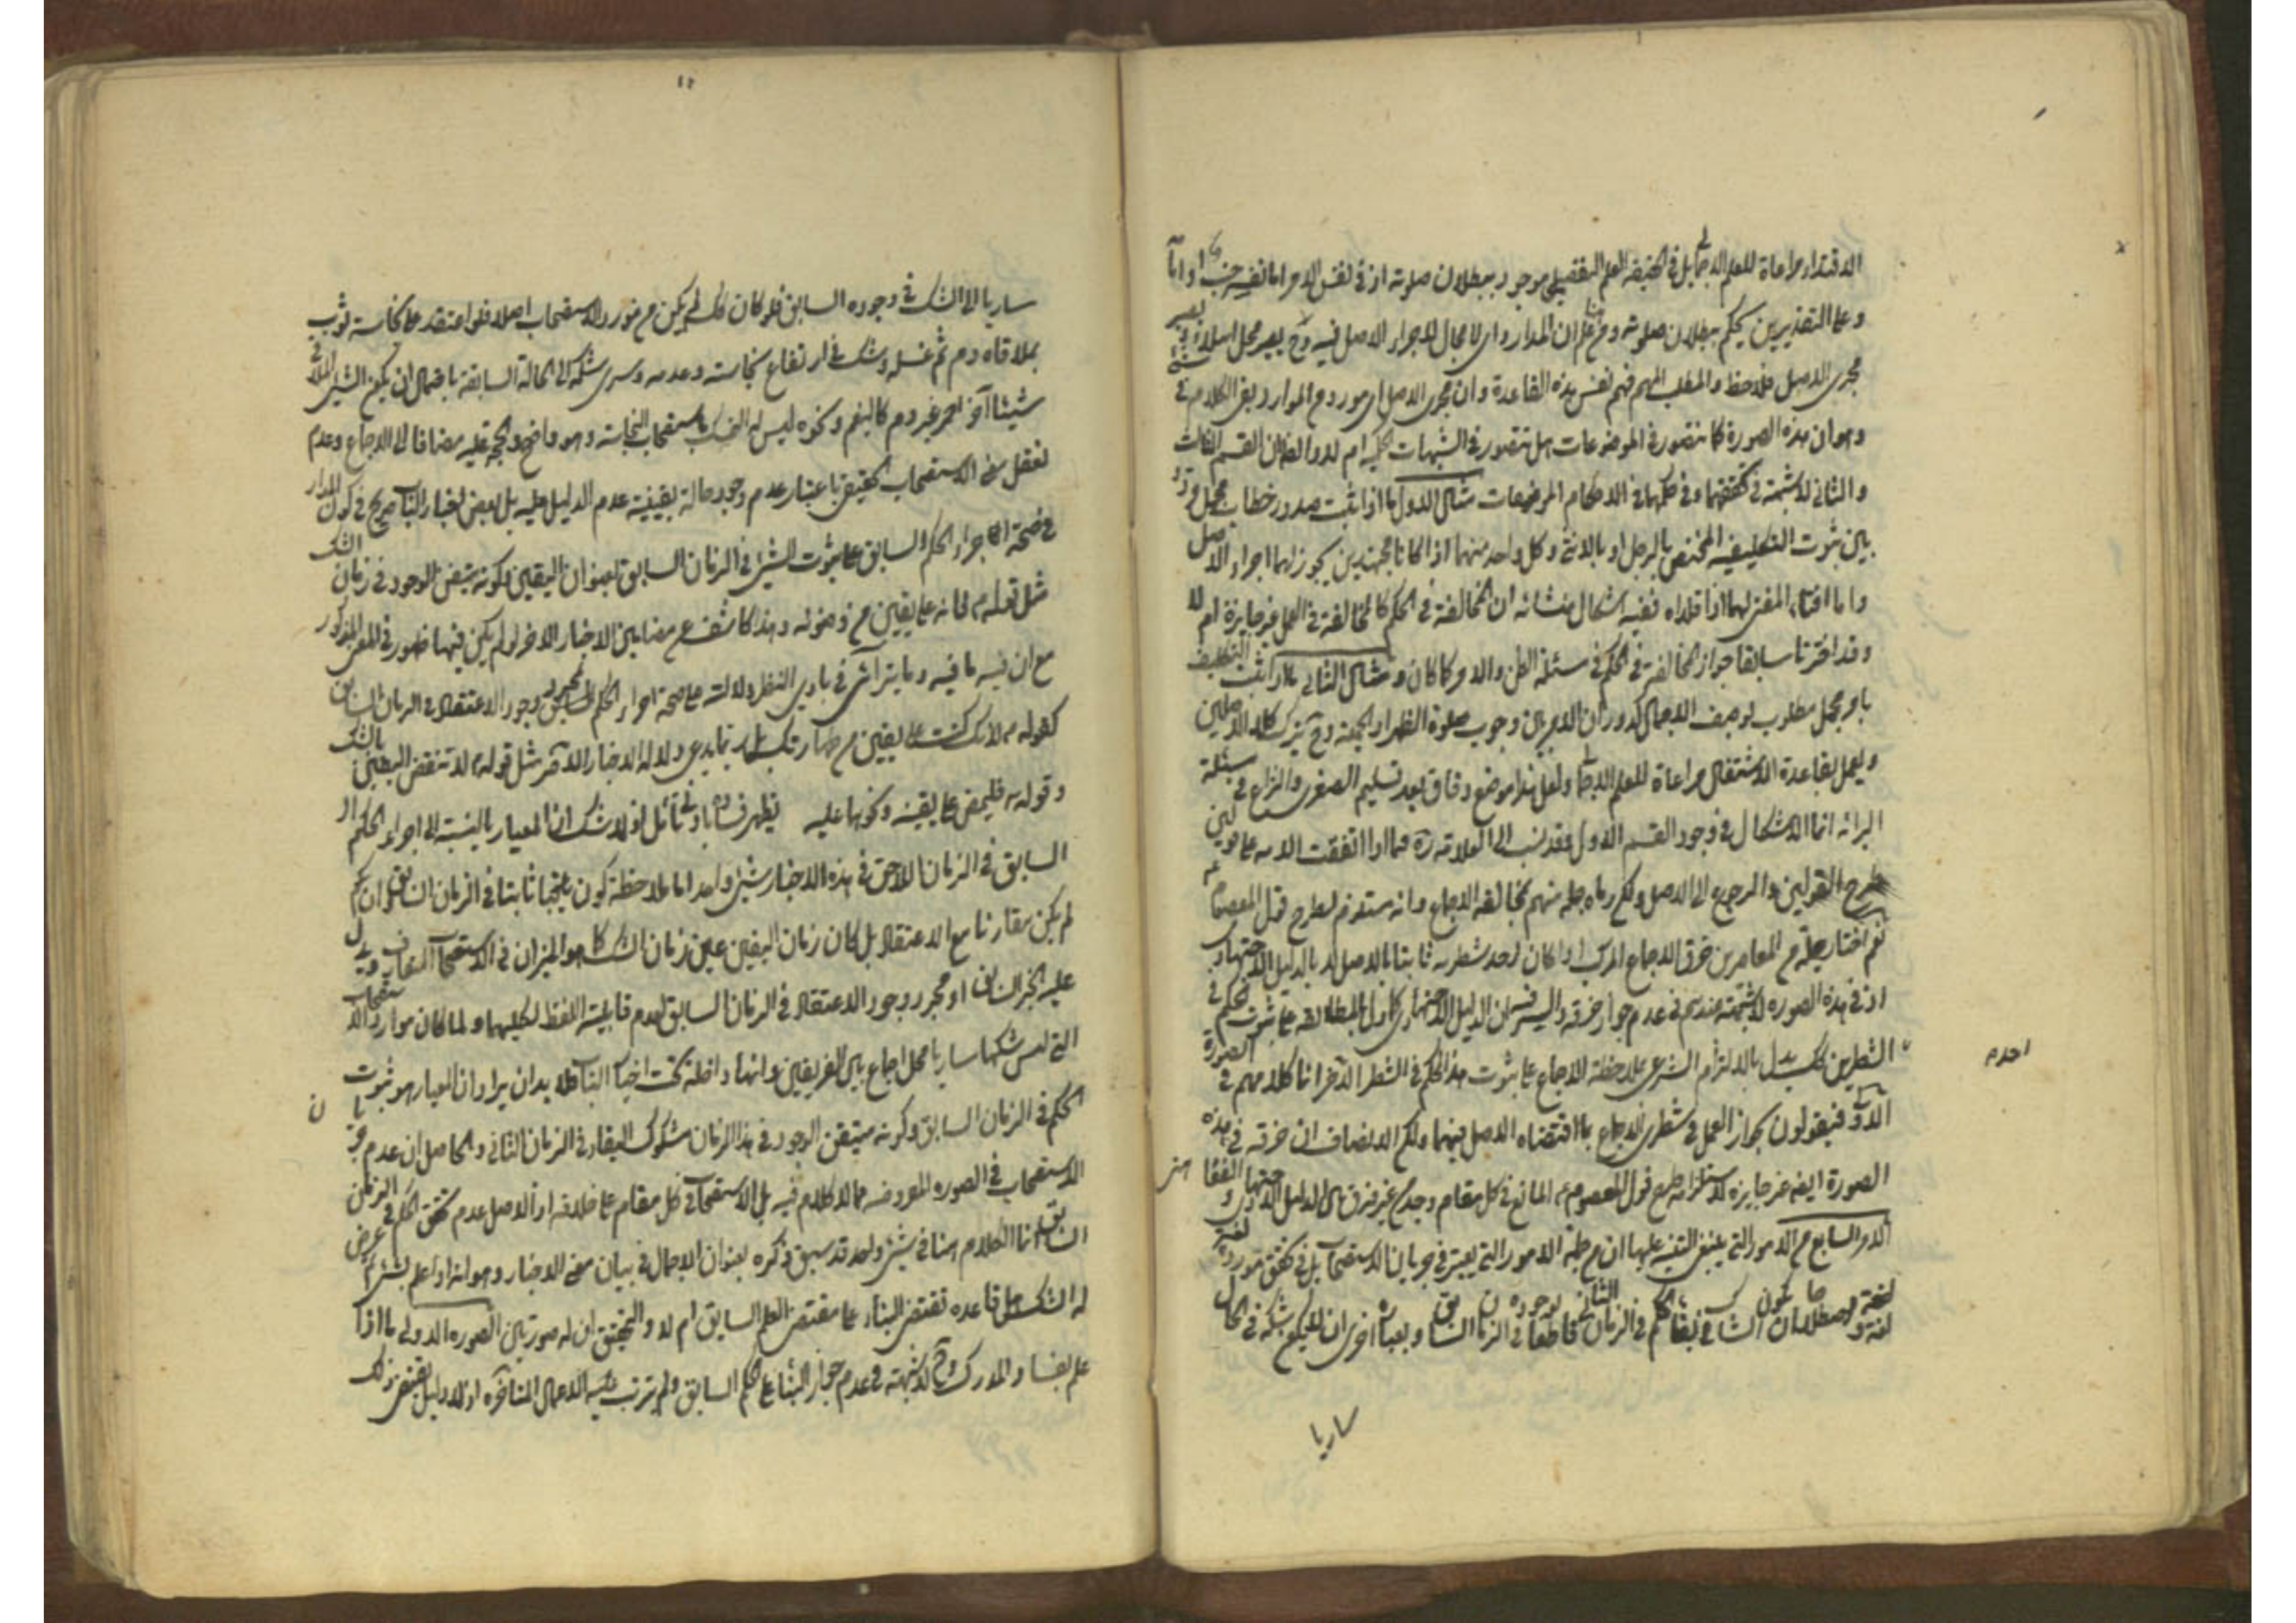 الاقتداء مراعاة للعلم الاجمالي بل في الحقيقة العلم التفصيلي موجود ببطلان صلوته اذ في نفس الامر اما نفسه جنب او امامه
وعلى التقديرين يحكم ببطلان صلوته ومن هنا علم ان المدار وان لا مجال لاجراء الاصل فيه وح يصير محل
مجرى الاصل فلاحظ والمطلب المهم فهم نفس هذه القاعدة وان مجرى الاصل اي مورد من الموارد بقي الكلام في شيء
وهو ان هذه الصورة كما تتصور في الموضوعات هل تتصور في الشبهات الحكمية ام لا والظاهر ان القسم الثالث
والثاني لا شبهة في تحققهما وفي حكمهما في الاحكام الموضوعات مثال الاول ما اذا ثبت صدور خطاب مجمل مردد
بين ثبوت التكليف المختص بالرجل او بالانثى وكل واحد منهما اذا كانا مجتهدين يجوز لهما اجراء الاصل
واما افتاء المفتي لهما اذا قلداه ففيه اشكال منشائه ان المخالفة في الحكم كالمخالفة في العمل غير جايزة ام لا
وقد اخترنا سابقا جواز المخالفة في الحكم في مسئلة الظن والامر كما كان ومثال الثاني ما اذا ثبت التكليف
بامر مجمل مطلوب بوصف الاجمال كدوران الامر بين وجوب صلوة الظهر او الجمعة وح يترك كلا الاصلين
ويعمل بقاعدة الاشتغال مراعاة للعلم الاجمالي ولعل هذا موضع وفاق بعد تسليم الصغرى والنزاع في مسئلة
البرائة انما الاشكال في وجود القسم الاول فقد نسب الى العلامة ره فيما اذا اتفقت الامة على قولين
طرح القولين والرجوع الى الاصل ولكن رماه جملة منهم بمخالفة الاجماع وانه مستلزم لطرح قول المعصوم ع
نعم اختار جملة من المعاصرين خرق الاجماع المركب اذا كان احد شطريه ثابتا بالاصل لا بالدليل الاجتهادي
اذ في هذه الصورة لا شبهة عندهم في عدم جواز خرقه والسر فيه ان الدليل الاجتهادي كما دل بالمطابقة على ثبوت الحكم في
الشطرين كك يدل بالالتزام الشرعي بملاحظة الاجماع على ثبوت هذا الحكم في الشطر الآخر انما كلامهم في الصورة
الاولى فيقولون بجواز العمل في شطري الاجماع بما اقتضاه الاصل فيهما ولكن الانصاف ان خرقه في هذه
الصورة ايضا غير جايزة لاستلزامه طرح قول المعصوم ع المانع في كل مقام وجد من غير فرق بين الدليل الاجتهادي والفقاهتي
الامر السابع من الامور التي ينبغي التنبيه عليها ان من جملة الامور التي يعتبر في جريان الاستصحاب بل في تحقق مورده
لغة واصطلاحا ان يكون الشك في بقاء الحكم في الزمان الثاني قاطعا بوجوده في الزمان السابق وبعبارة اخرى ان لا يكون شكه في الحال
ساريا
احدهم
ساريا الى الشك في وجوده السابق فلو كان كك لم يكن من مورد الاستصحاب اصلا فلو اعتقد على نجاسة ثوب
بملاقاة دم ثم غسله وشك في ارتفاع نجاسته وعدمه وسرى شكه الى الحالة السابقة باحتمال ان يكون الشيء الملاقي
شيئا آخر احمر غير دم كالبقم ونحوه ليس له التمسك باستصحاب النجاسة وهو واضح والحجة عليه مضافا الى الاجماع وعدم
تعقل معنى الاستصحاب الحقيقي باعتبار عدم وجود حالة يقينية عدم الدليل عليه بل بعض اخبار الباب صريح في كون المدار
في صحة اجراء الحكم السابق على ثبوت الشيء في الزمان السابق بعنوان اليقين وكونه متيقن الوجود في زمان الشك
مثل قوله ع فانه على يقين من وضوئه وهذا كاشف عن مضامين الاخبار الاخر لو لم يكن فيها ظهور في المعنى المذكور
مع ان فيه ما فيه وما يترائى في بادي النظر دلالته على صحة اجراء الحكم السابق بمجرد وجود الاعتقاد في الزمان السابق
كقوله ع لانك كنت على يقين من طهارتك بل ربما يدعى دلالة الاخبار الاخر مثل قوله ع لا تنقض اليقين بالشك
وقوله ع فليمض على يقينه ونحوها عليه يظهر فساده بادنى تأمل اذ لا شك ان المعيار بالنسبة الى اجراء الحكم
السابق في الزمان اللاحق في هذه الاخبار شيء واحد اما ملاحظة كون ثابتا في الزمان السابق وان
لم يكن مقارنا مع الاعتقاد بل كان زمان اليقين عين زمان الشك كما هو الميزان في الاستصحاب المتعارف ويدل
عليه الخبر السابق او مجرد وجود الاعتقاد في الزمان السابق لعدم قابلية اللفظ لكليهما ولما كان موارد الاستصحاب
التي ليس شكها ساريا محل اجماع بين الفريقين وانها داخلة تحت اخبار الباب فلا بد ان يراد ان المعيار هو ثبوت
الحكم في الزمان السابق وكونه متيقن الوجود في هذا الزمان مشكوك البقاء في الزمان الثاني والحاصل ان عدم جريان
الاستصحاب في الصورة المعروضة مما لا كلام فيه بل الاستصحاب في كل مقام على خلافه اذ الاصل عدم تحقق الحكم في الزمان
السابق انما الكلام هنا في شيء واحد قد سبق ذكره بعنوان الاجمال في بيان معنى الاخبار وهو انه اذا علم بشيء ثم عرض
له الشك هل قاعدة تقتضي البناء على مقتضى العلم السابق ام لا والتحقيق ان له صورتين الصورة الاولى ما اذا
علم بفساد المدرك وح لا شبهة في عدم جواز البناء على الحكم السابق ولم يترتب عليه الاعمال المتأخرة اذ لا دليل يقتضي ذلك